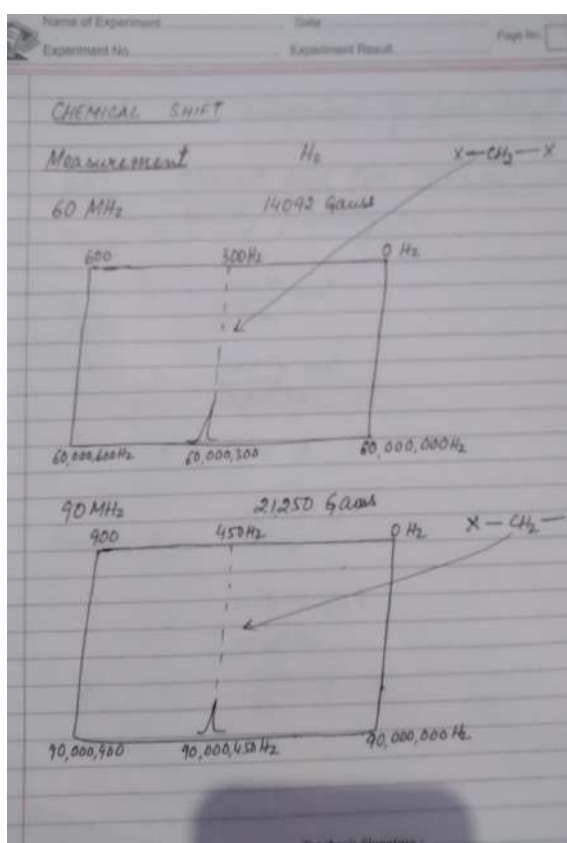 Name of Experiment Date Page No.
Experiment No. Experiment Result
CHEMICAL SHIFT
Measurement Hz X—CH2—X
60 MHz 14092 Gauss
600 300Hz 0 Hz
60,000,600Hz 60,000,300 60,000,000Hz
90 MHz 21,250 Gauss
900 450Hz 0 Hz X—CH2—
90,000,900 90,000,450Hz 90,000,000Hz